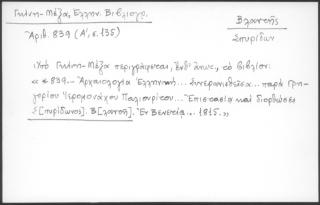 Γκίνη-Μέξα, Ἑλλην. Βιβλιογρ.
Ἀριθ. 839 (Α', σ. 135)
Βλαντῆς
Σπυρίδων
Ὑπὸ Γκίνη-Μέξα περιγράφεται, ἔνθ' ἄνω, τὸ βιβλίον:
« *839.- Ἀρχαιολογία Ἑλληνική... Συνερανισθεῖσα... παρὰ Γρη-
γορίου Ἱερομονάχου Παλιουρίτου... Ἐπιστασίᾳ καὶ διορθώσει
Σ[πυρίδωνος]. Β[λαντῆ]. Ἐν Βενετίᾳ... 1815.»